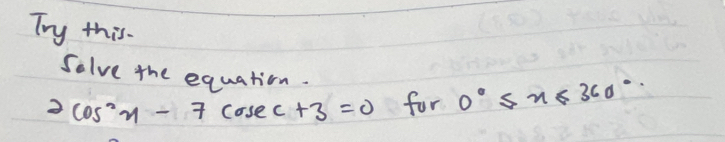 Try this.
Solve the equation.
2 cos²x - 7 cosec + 3 = 0 for 0° ≤ x ≤ 360°.